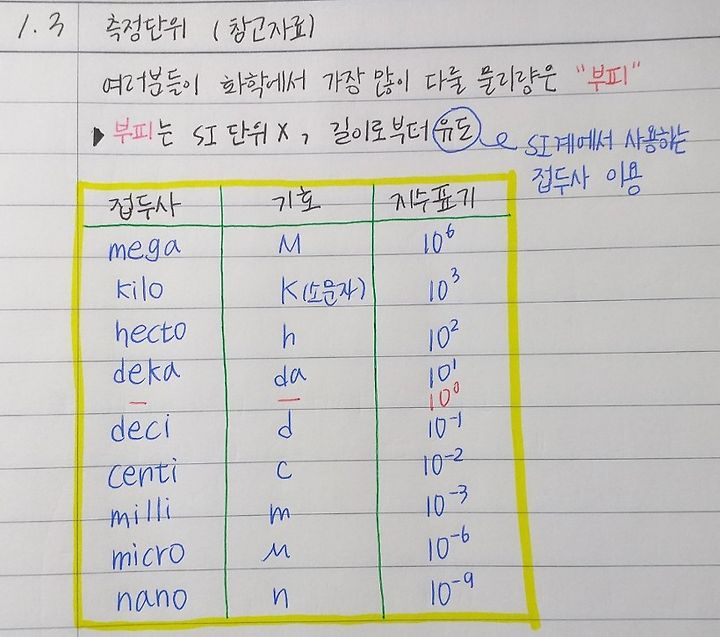 1.3 측정단위 (참고자료)
여러분들이 화학에서 가장 많이 다룰 물리량은 "부피"
▶ 부피는 SI 단위 X, 길이로부터 유도
SI계에서 사용하는
접두사 이용
접두사 기호 지수표기
mega M 10⁶
kilo K(소문자) 10³
hecto h 10²
deka da 10¹
— — 10⁰
deci d 10⁻¹
centi c 10⁻²
milli m 10⁻³
micro μ 10⁻⁶
nano n 10⁻⁹